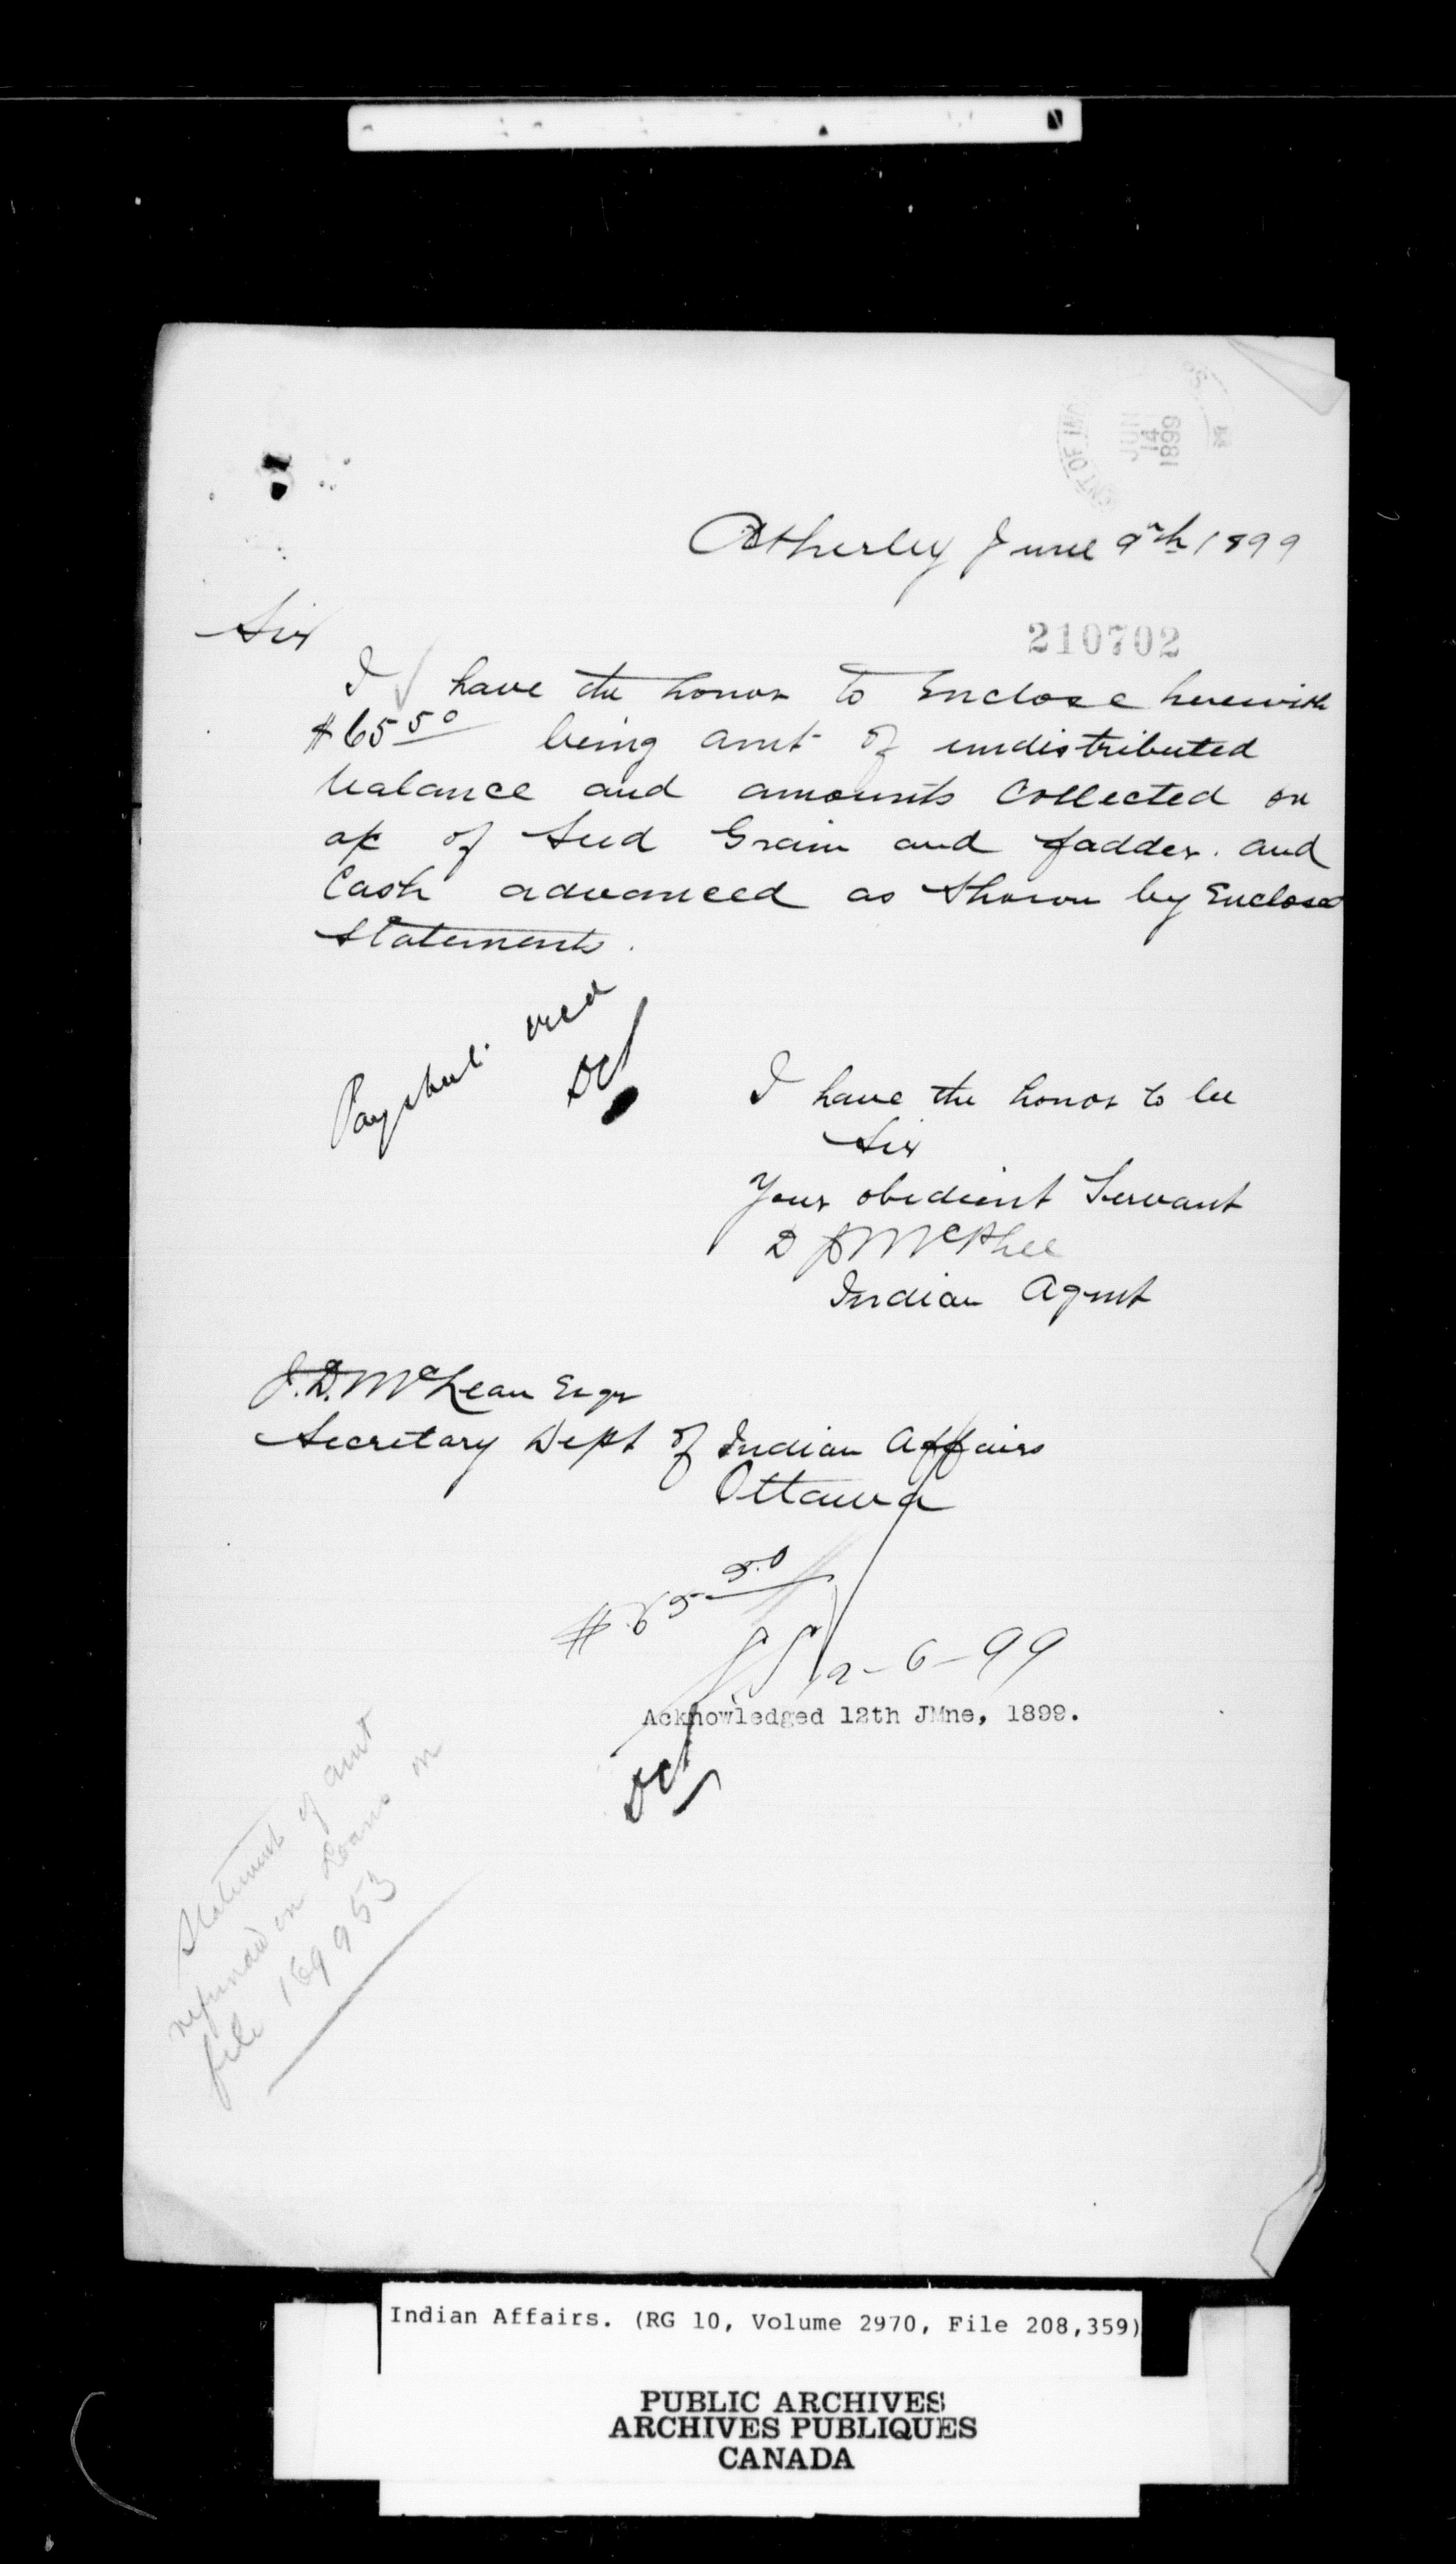 JUN
14
1899
Atherley June 9th 1899
210702
Sir
I have the honor to Enclose herewith
$65 50 being amt of undistributed
balance and amounts Collected on
a/c of Seed Grain and fodder. and
Cash advanced as Shown by Enclosed
Statements.
Paysheet
DCS
I have the honor to be
Sir
Your obedient Servant
D J McPhee
Indian Agent
J.D. McLean Esqr
Secretary Dept of Indian Affairs
Ottawa
$65 50
12-6-99
Acknowledged 12th JMne, 1899.
DCS
Statement of amt
refunded on Loans on
file 169953
Indian Affairs. (RG 10, Volume 2970, File 208,359)
PUBLIC ARCHIVES
ARCHIVES PUBLIQUES
CANADA